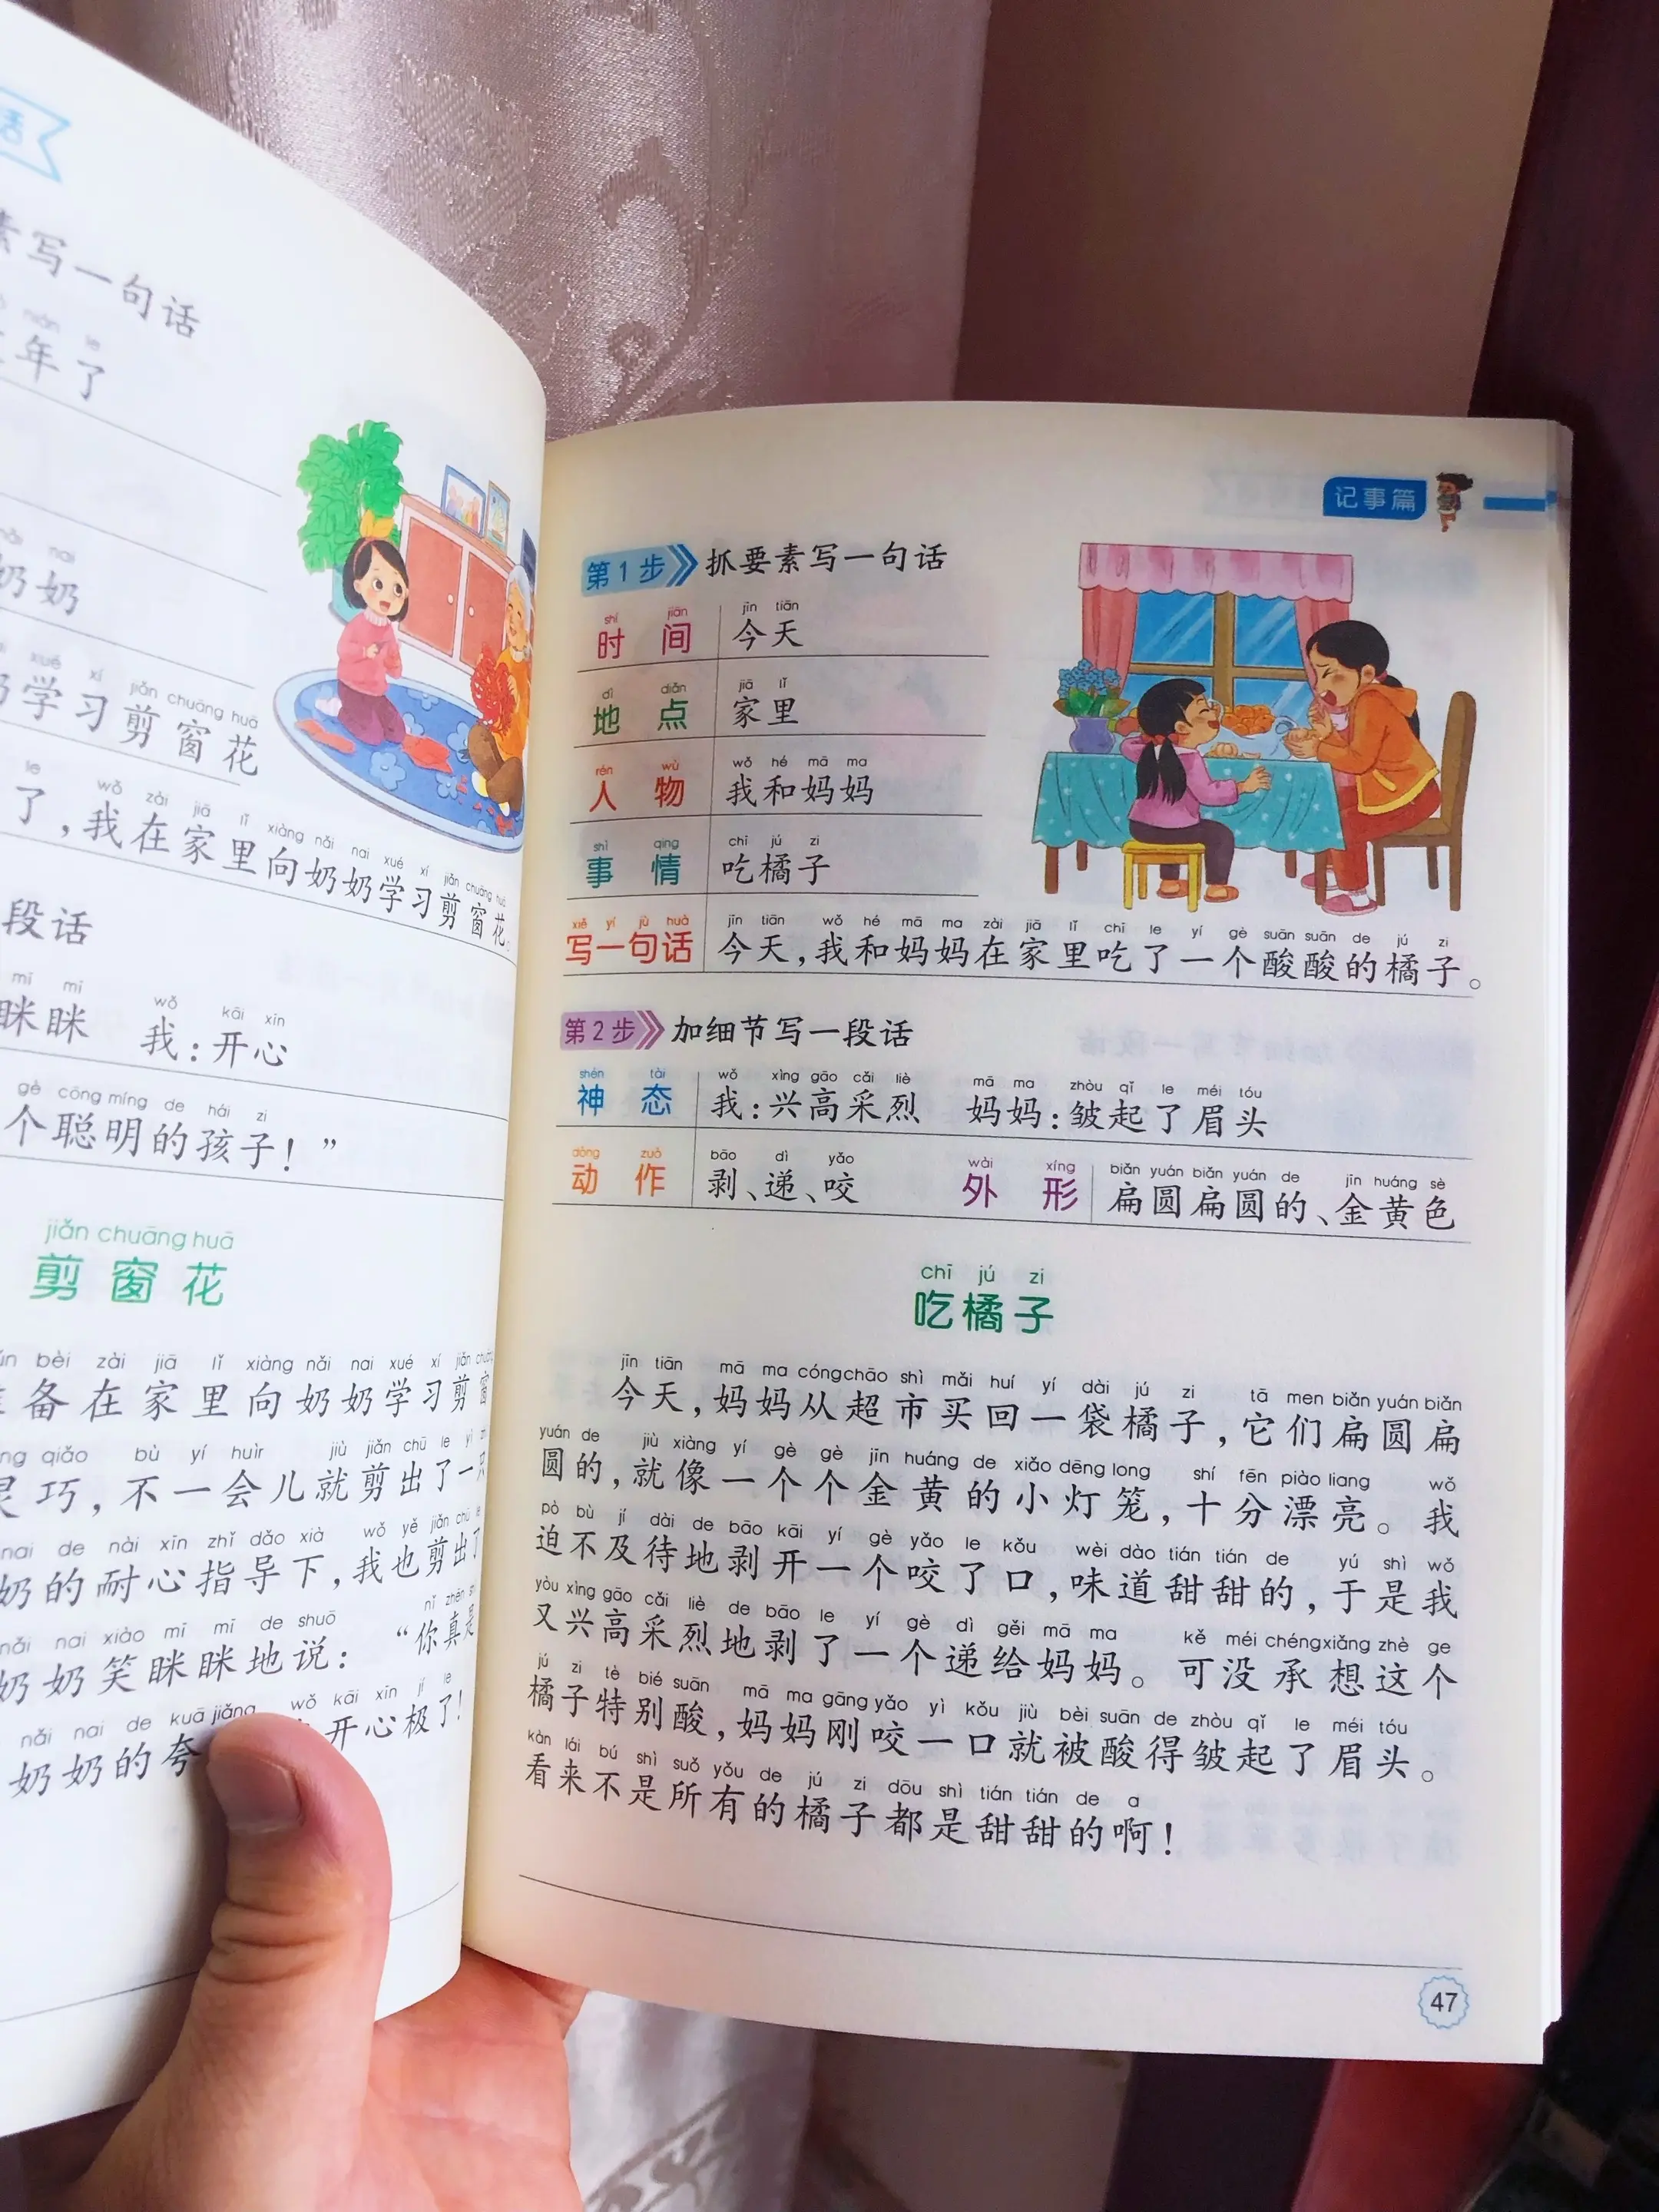 素写一句话
nián le
年了
nǎi nai
奶奶
xué xí jiǎn chuāng huā
奶学习剪窗花
le wǒ zài jiā lǐ xiàng nǎi nai xué xí jiǎn chuāng huā
了，我在家里向奶奶学习剪窗花。
段话
mī mī wǒ kāi xīn
眯眯 我：开心
gè cōng míng de hái zi
个聪明的孩子！”
jiǎn chuāng huā
剪窗花
bèi zài jiā lǐ xiàng nǎi nai xué xí jiǎn chuāng
备在家里向奶奶学习剪窗
qiǎo bù yí huìr jiù jiǎn chū le yì
灵巧，不一会儿就剪出了一只
nai de nài xīn zhǐ dǎo xià wǒ yě jiǎn chū le
奶的耐心指导下，我也剪出了
nǎi nai xiào mī mī de shuō nǐ zhēn
奶奶笑眯眯地说：“你真是
nǎi nai de kuā jiǎng wǒ kāi xīn jí le
奶奶的夸 开心极了！
记事篇
第1步 抓要素写一句话
shí jiān jīn tiān
时间 今天
dì diǎn jiā lǐ
地点 家里
rén wù wǒ hé mā ma
人物 我和妈妈
shì qing chī jú zi
事情 吃橘子
xiě yí jù huà jīn tiān wǒ hé mā ma zài jiā lǐ chī le yí gè suān suān de jú zi
写一句话 今天，我和妈妈在家里吃了一个酸酸的橘子。
第2步 加细节写一段话
shén tài wǒ xìng gāo cǎi liè mā ma zhòu qǐ le méi tóu
神态 我：兴高采烈 妈妈：皱起了眉头
dòng zuò bāo dì yǎo wài xíng biǎn yuán biǎn yuán de jīn huáng sè
动作 剥、递、咬 外形 扁圆扁圆的、金黄色
chī jú zi
吃橘子
jīn tiān mā ma cóng chāo shì mǎi huí yí dài jú zi tā men biǎn yuán biǎn
今天，妈妈从超市买回一袋橘子，它们扁圆扁
yuán de jiù xiàng yí gè gè jīn huáng de xiǎo dēng long shí fēn piào liang wǒ
圆的，就像一个个金黄的小灯笼，十分漂亮。我
pò bù jí dài de bāo kāi yí gè yǎo le kǒu wèi dào tián tián de yú shì wǒ
迫不及待地剥开一个咬了口，味道甜甜的，于是我
yòu xìng gāo cǎi liè de bāo le yí gè dì gěi mā ma kě méi chéng xiǎng zhè ge
又兴高采烈地剥了一个递给妈妈。可没承想这个
jú zi tè bié suān mā ma gāng yǎo yì kǒu jiù bèi suān de zhòu qǐ le méi tóu
橘子特别酸，妈妈刚咬一口就被酸得皱起了眉头。
kàn lái bú shì suǒ yǒu de jú zi dōu shì tián tián de a
看来不是所有的橘子都是甜甜的啊！
47